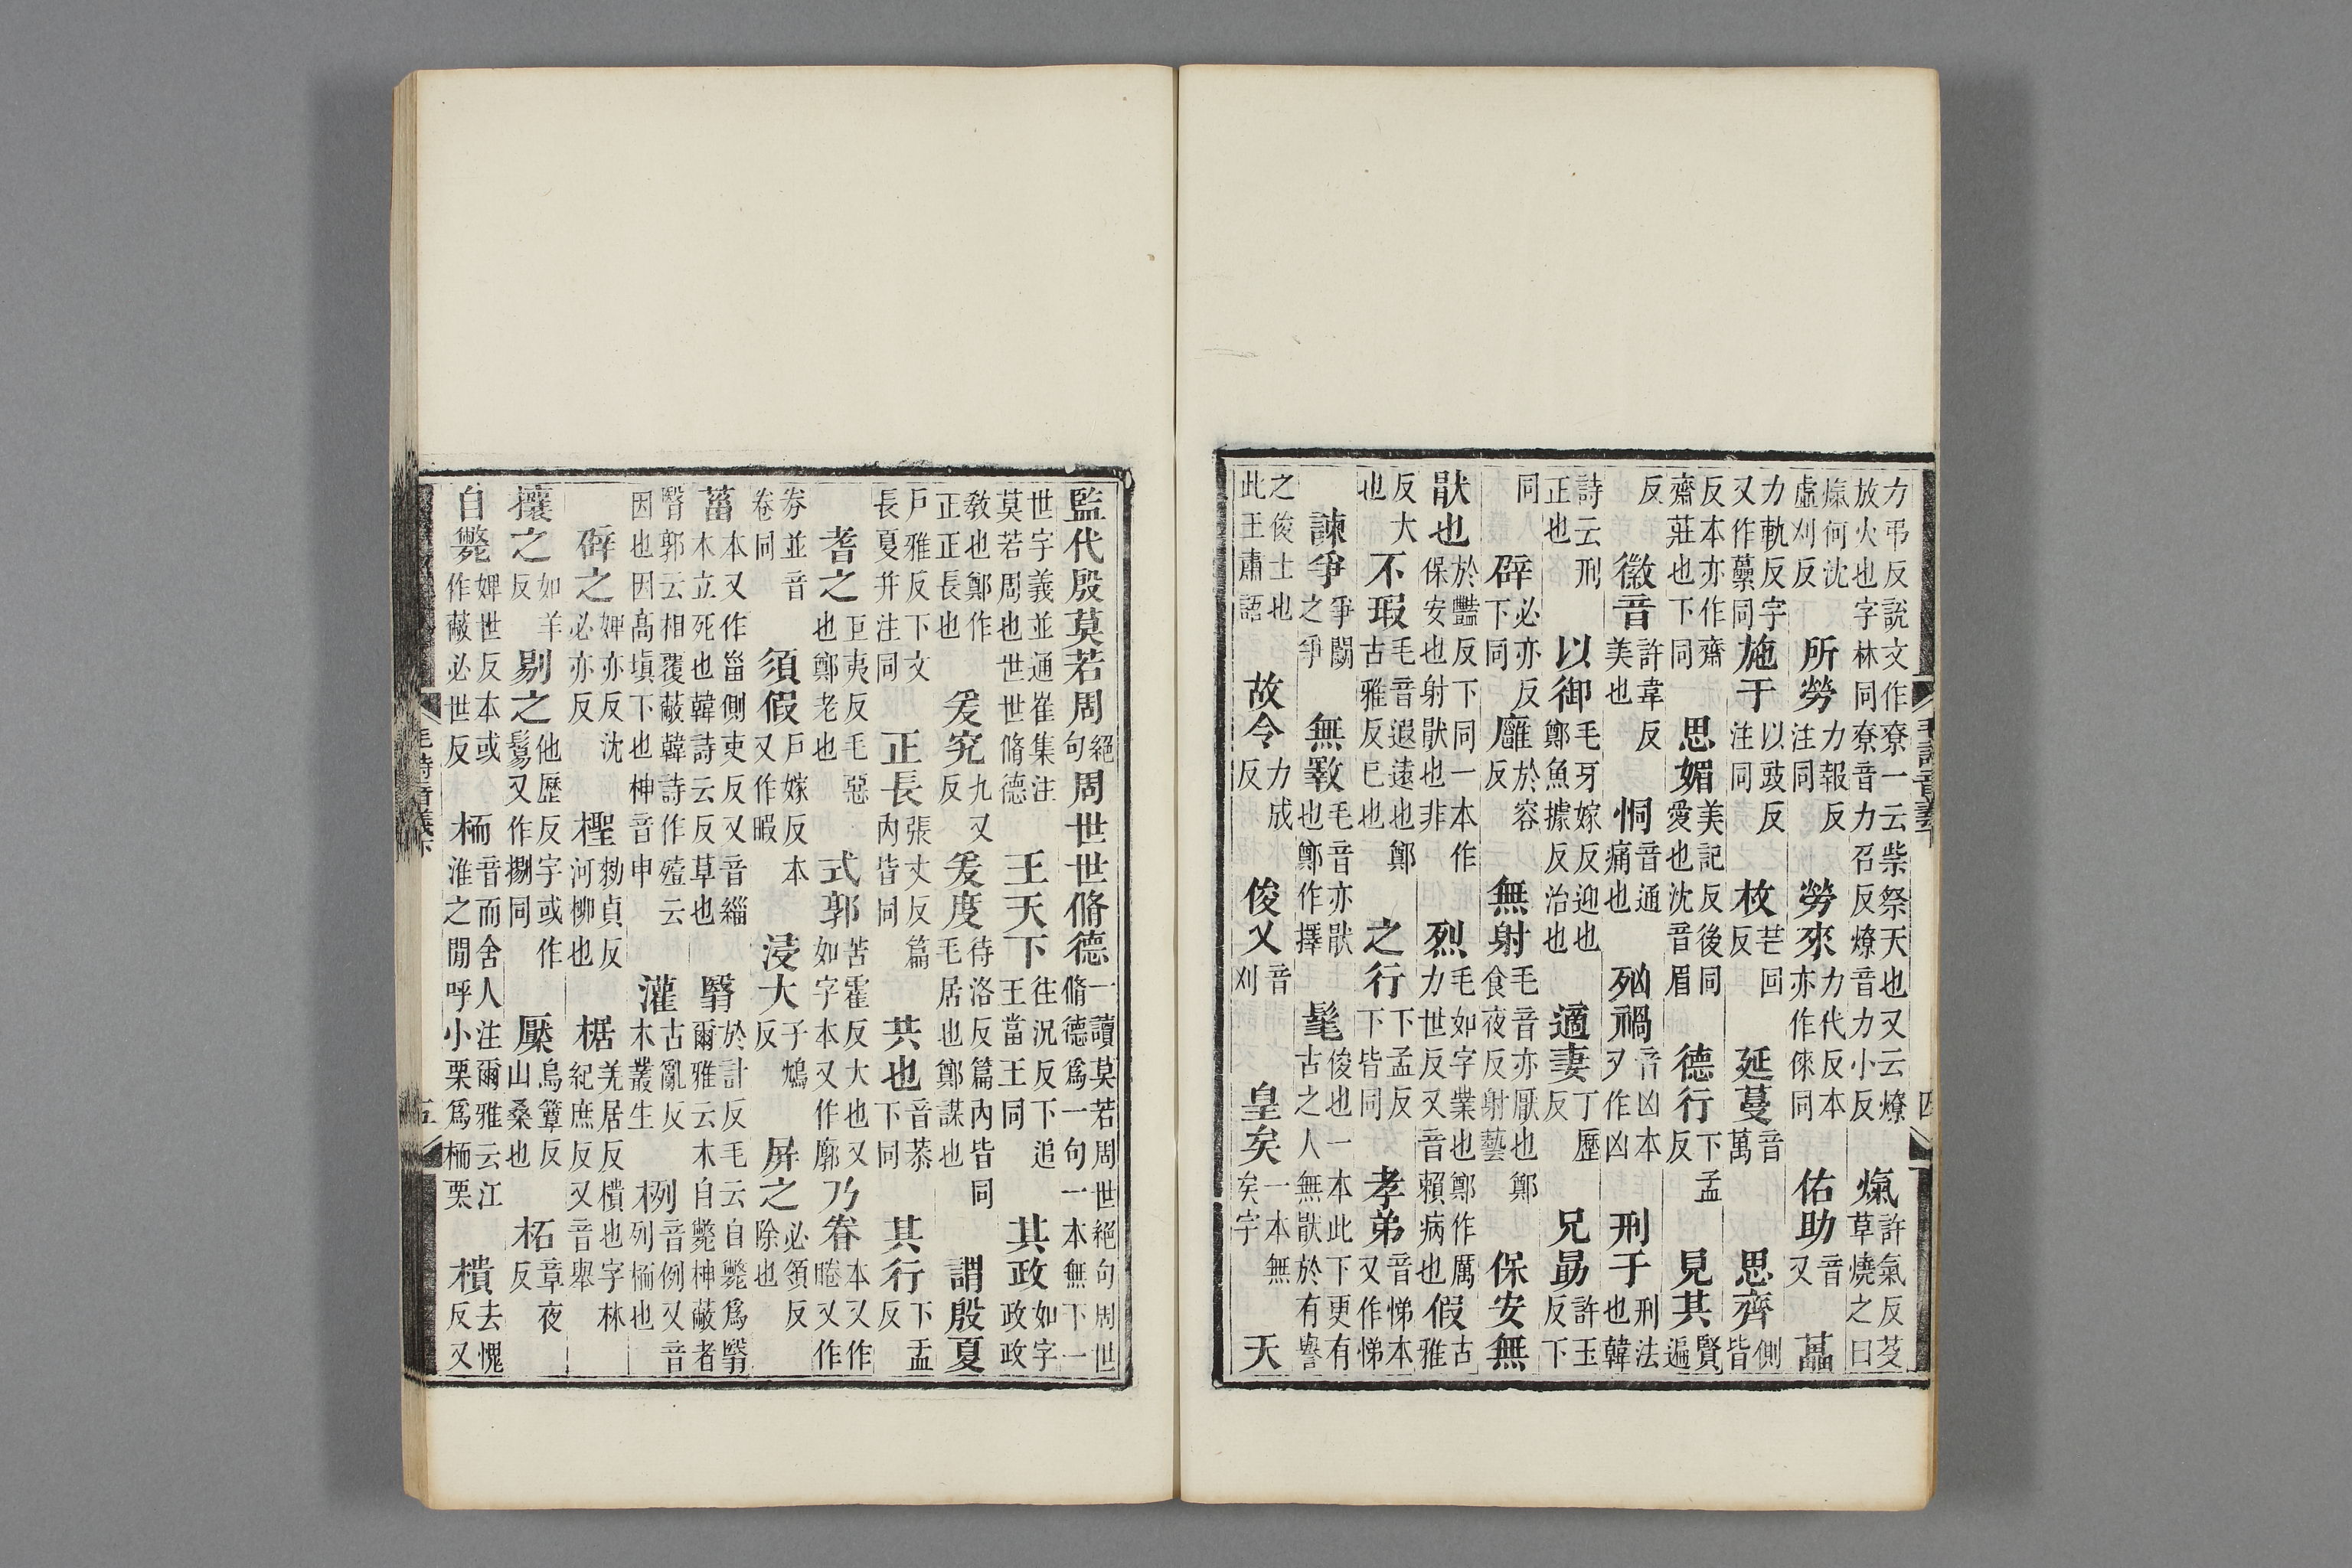 毛詩音義下 四
力弔反說文作尞一云祡祭天也又云燎放火也字林同尞音力召反燎音力小反 熂許氣反芟草燒之曰
熂何沈虛刈反 所勞力報反注同 勞來力代反本亦作倈同 佑助音又 藟
力軌反字又作虆同 施于以豉反注同 枚芒回反 延蔓音萬 思齊側皆
反本亦作齋齋莊也下同 思媚美記反後同愛也沈音眉 德行下孟反 見其賢遍
反 徽音許韋反美也 恫音通痛也 㓙禍音凶本又作凶 刑于刑法也韓
詩云刑正也 以御毛牙嫁反迎也鄭魚據反治也 適妻丁歷反 兄勗許玉反下
同 辟必亦反下同 廱於容反 無射毛音亦厭也鄭食夜反射藝 保安無
猒也於豔反下同一本作保安也射猒也非 烈毛如字業也鄭作厲力世反又音賴病也 假古雅
反大也 不瑕毛音遐遠也鄭古雅反已也 之行下孟反下皆同 孝弟音悌本又作悌
諫爭爭鬭之爭 無斁毛音亦猒也鄭作擇 髦俊也一本此下更有古之人無猒於有譽
之俊士也此王肅語 故令力成反 俊乂音刈 皇矣一本無矣字 天
監代殷莫若周絕句 周世世脩德一讀莫若周世絕句周世脩德爲一句一本無下一
世字義並通崔集注莫若周也世世脩德 王天下往況反下追王當王同 其政如字政政
教也鄭作正正長也 爰究九又反 爰度待洛反篇內皆同毛居也鄭謀也 謂殷夏
戶雅反下文長夏并注同 正長張丈反篇內皆同 共也音恭下同 其行下孟反
耆之巨夷反毛惡也鄭老也 式郭苦霍反大也又如字本又作廓 乃眷本又作睠又作
劵並音卷同 須假戶嫁反本又作暇 浸大子鴆反 屏之必領反除也
菑本又作甾側吏反又音緇木立死也韓詩云反草也 翳於計反毛云自斃爲翳爾雅云木自斃柛蔽者
翳郭云相覆蔽韓詩作殪云因也因高填下也柛音申 灌古亂反木叢生 栵音例又音列栭也
辟之婢亦反沈必亦反 檉勑貞反河柳也 椐羌居反樻也字林紀庶反又音舉
攘之如羊反 剔之他歷反字或作鬄又作捌同 檿烏簟反山桑也 柘章夜反
自斃婢世反本或作蔽必世反 栭音而舍人注爾雅云江淮之閒呼小栗爲栭栗 樻去愧反又
毛詩音義下 五